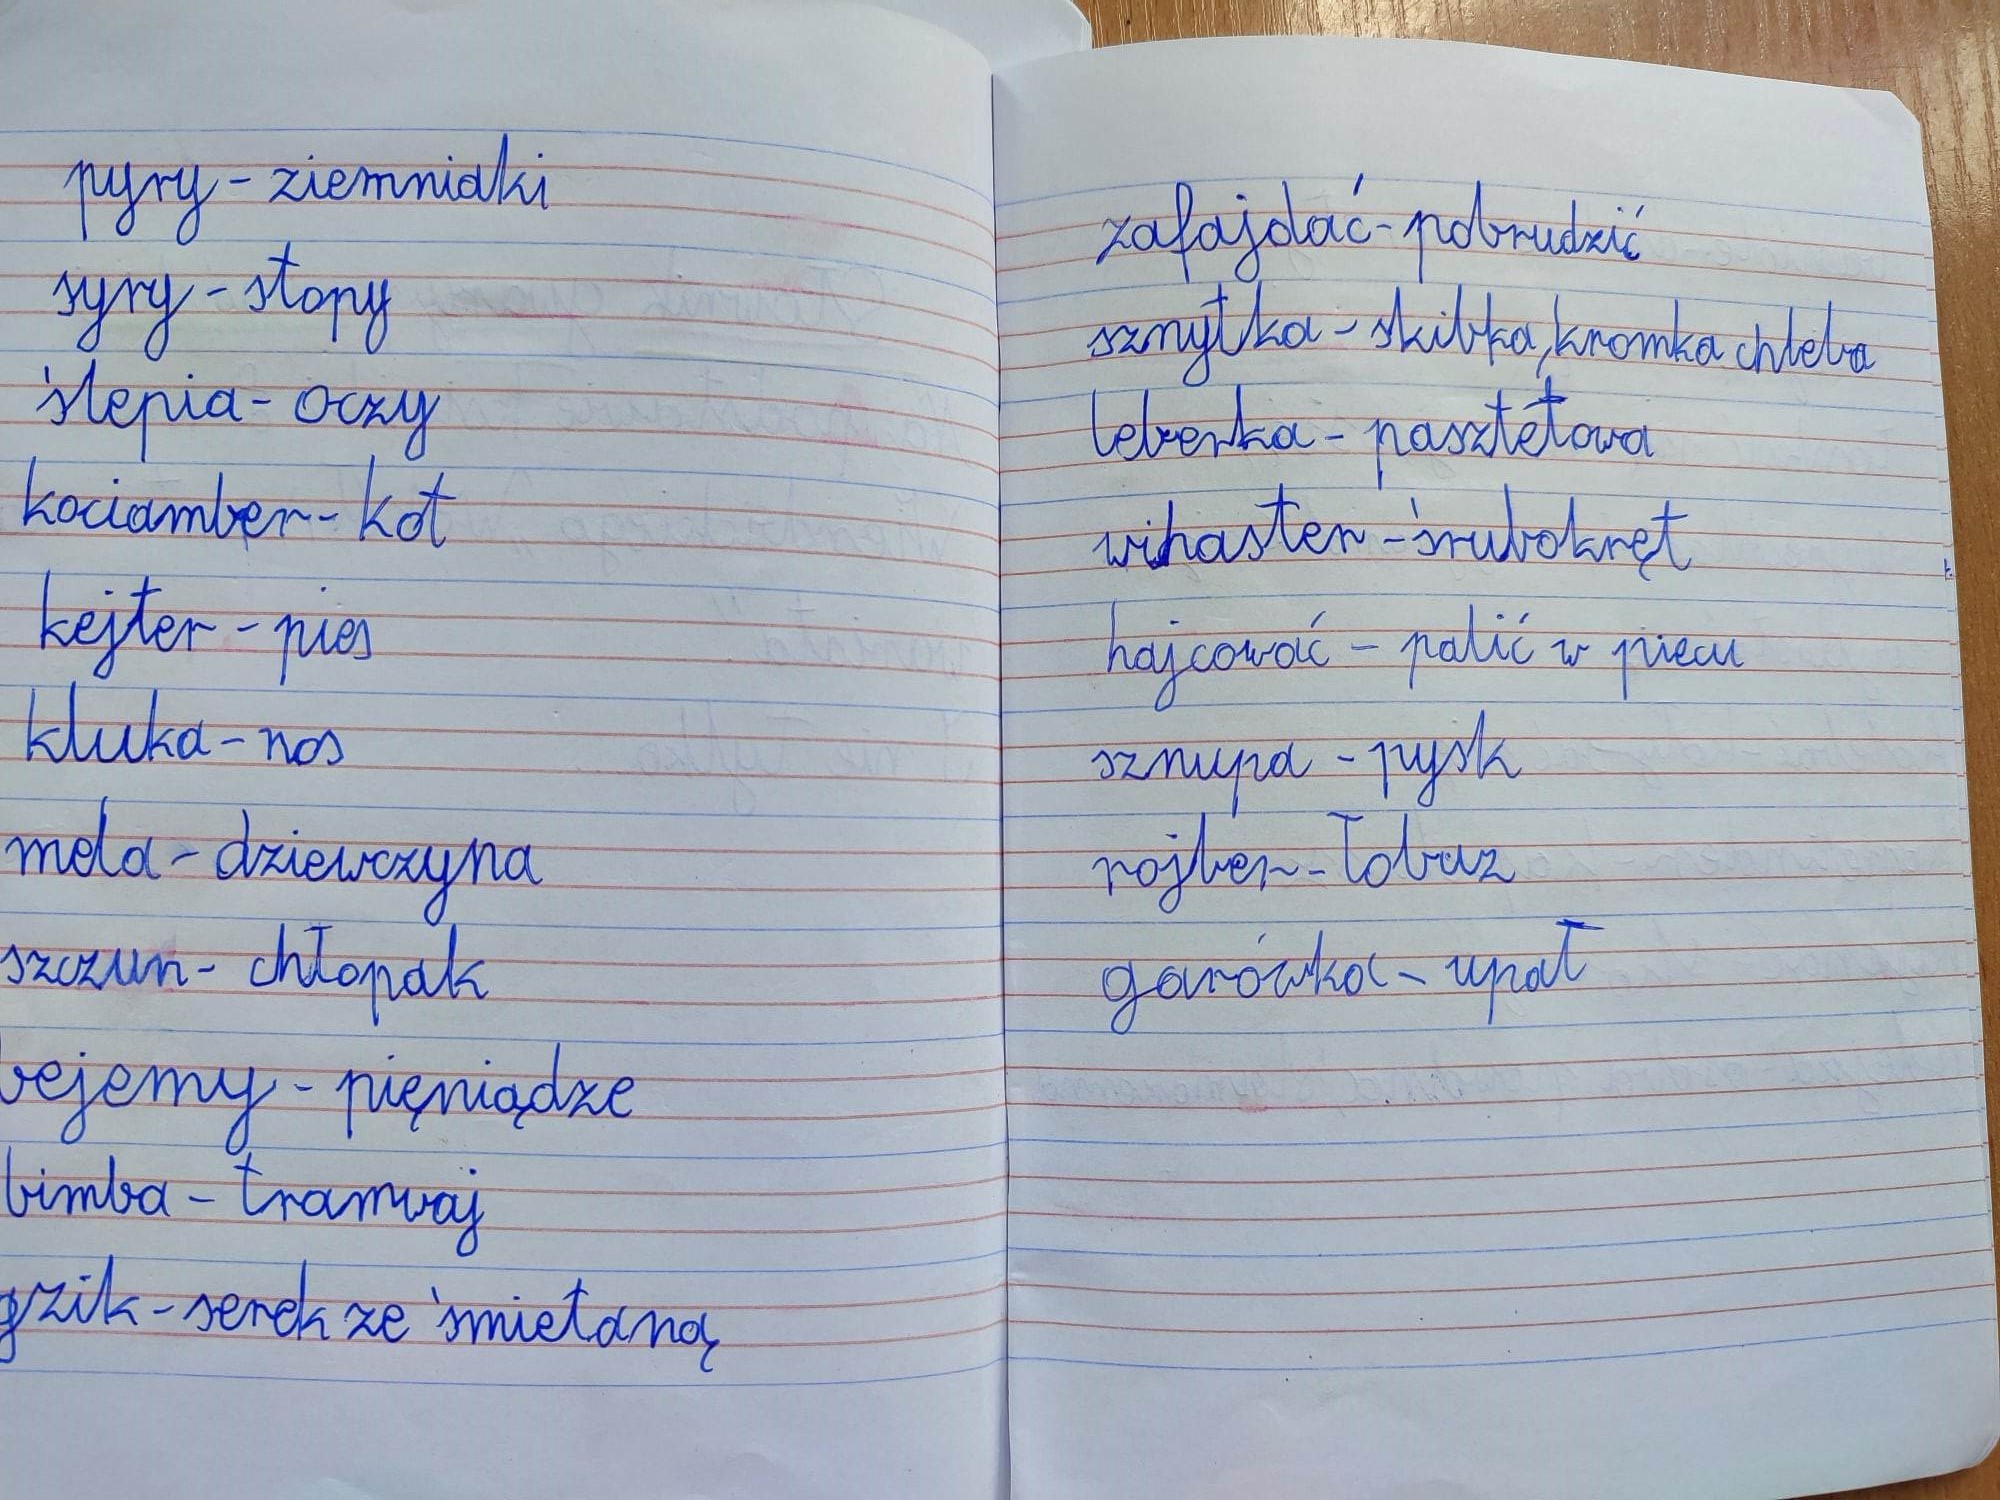 pyry - ziemniaki
syry - stopy
ślepia - oczy
kociamber - kot
kejter - pies
kluka - nos
mela - dziewczyna
szczun - chłopak
bejemy - pięniądze
bimba - tramwaj
gzik - serek ze śmietaną
zafajdać - pobrudzić
sznytka - skibka, kromka chleba
leberka - pasztetowa
wihaster - śrubokręt
hajcować - palić w piecu
sznupa - pysk
rojber - łobuz
garówka - upał